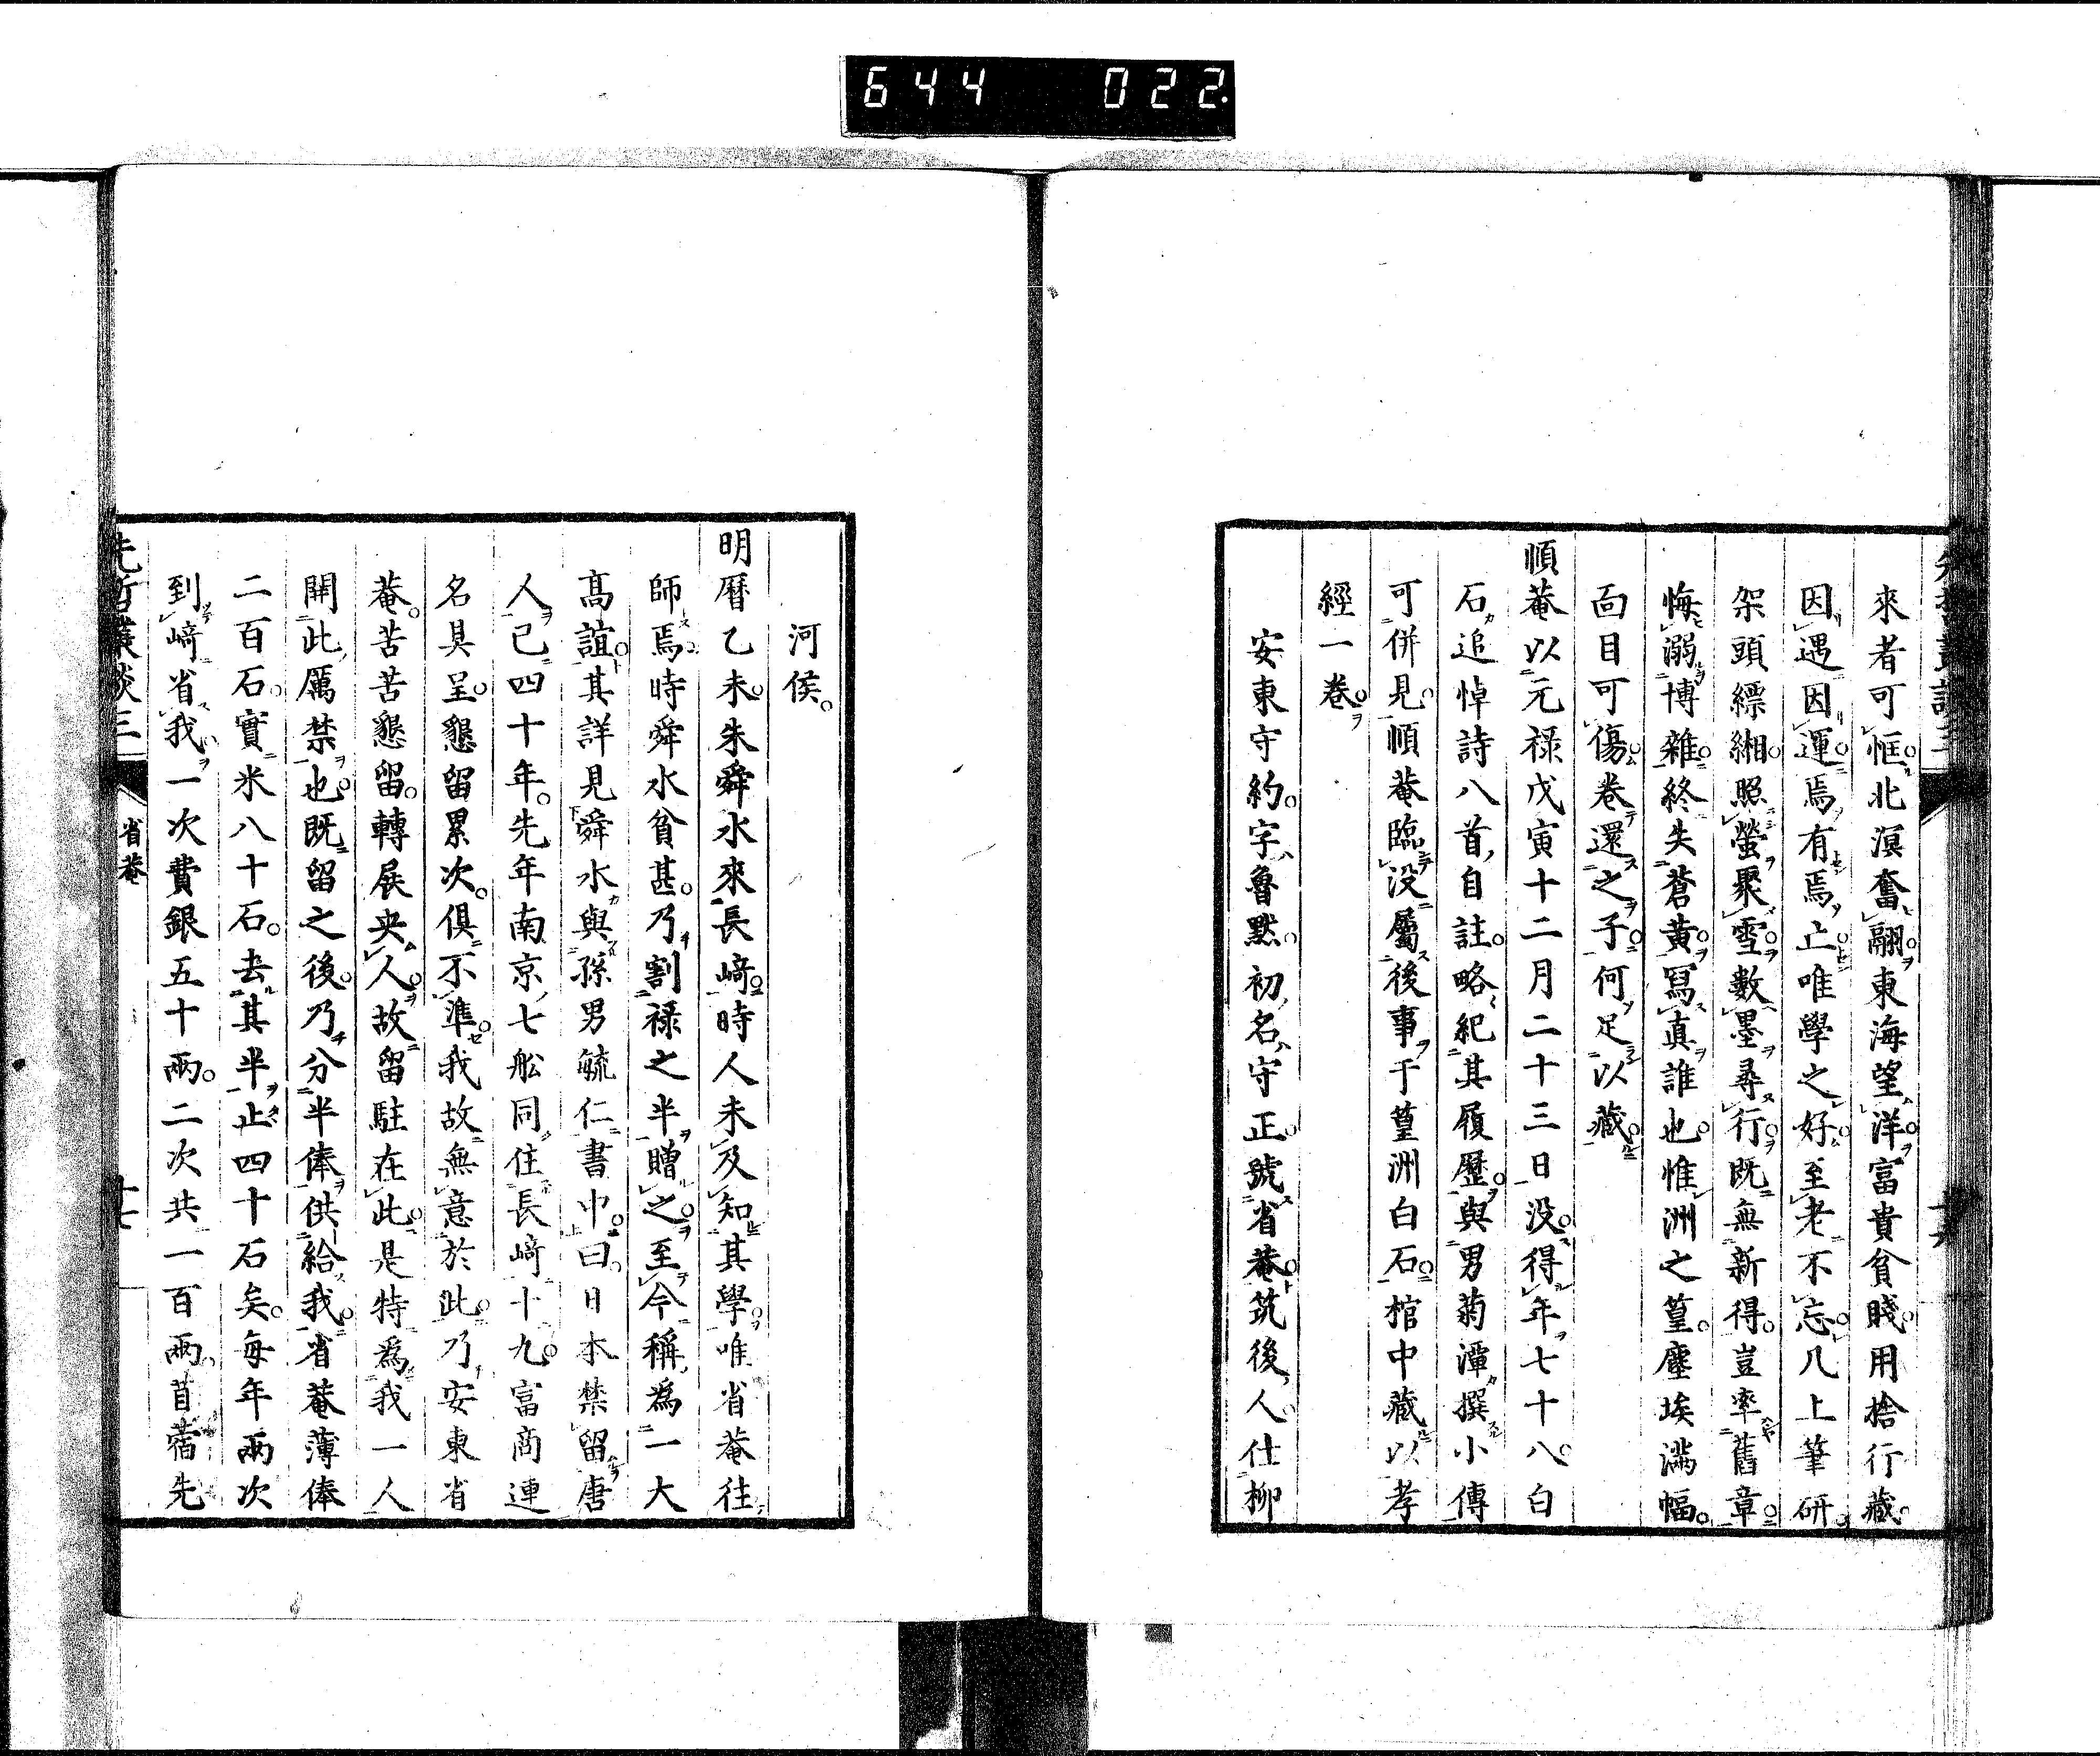 644 022
來者可恇北溟奮翮東海望洋富貴貧賤用捨行藏
因遇因運焉有焉止唯學之好至老不忘几上筆研
架頭縹緗照螢聚雪數墨尋行既無新得豈率舊章
悔溺博雜終失蒼黃寫真誰也惟洲之篁塵埃滿幅
面目可傷卷還之子何足以藏
順菴以元祿戊寅十二月二十三日沒得年七十八白
石追悼詩八首自註略紀其履歷與男菊潭撰小傳
可併見順菴臨沒屬後事于篁洲白石棺中藏以孝
經一卷
安東守約字魯默初名守正號省菴筑後人仕柳
河侯
明曆乙未朱舜水來長﨑時人未及知其學唯省菴往
師焉時舜水貧甚乃割祿之半贈之至今稱爲一大
高誼其詳見舜水與孫男毓仁書中曰日本禁留唐
人已四十年先年南京七舩同住長﨑十九富商連
名具呈懇留累次俱不準我故無意於此乃安東省
菴苦苦懇留轉展央人故留駐在此是特爲我一人
開此厲禁也既留之後乃分半俸供給我省菴薄俸
二百石實米八十石去其半止四十石矣每年兩次
到﨑省我一次費銀五十兩二次共一百兩苜蓿先
先哲叢談三 省菴 十七